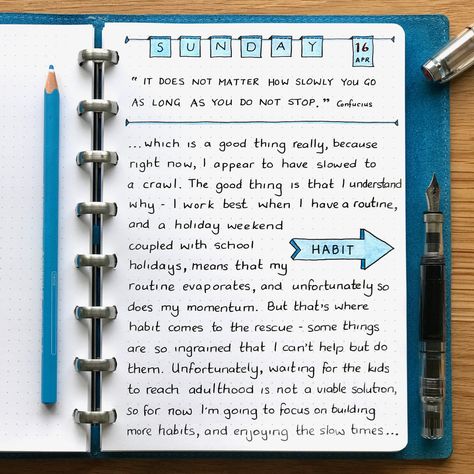 SUNDAY
16
APR
" IT DOES NOT MATTER HOW SLOWLY YOU GO
AS LONG AS YOU DO NOT STOP. " Confucius
...which is a good thing really, because
right now, I appear to have slowed to
a crawl. The good thing is that I understand
why - I work best when I have a routine,
and a holiday weekend
coupled with school
holidays, means that my
HABIT
routine evaporates, and unfortunately so
does my momentum. But that's where
habit comes to the rescue - some things
are so ingrained that I can't help but do
them. Unfortunately, waiting for the kids
to reach adulthood is not a viable solution,
so for now I'm going to focus on building
more habits, and enjoying the slow times...